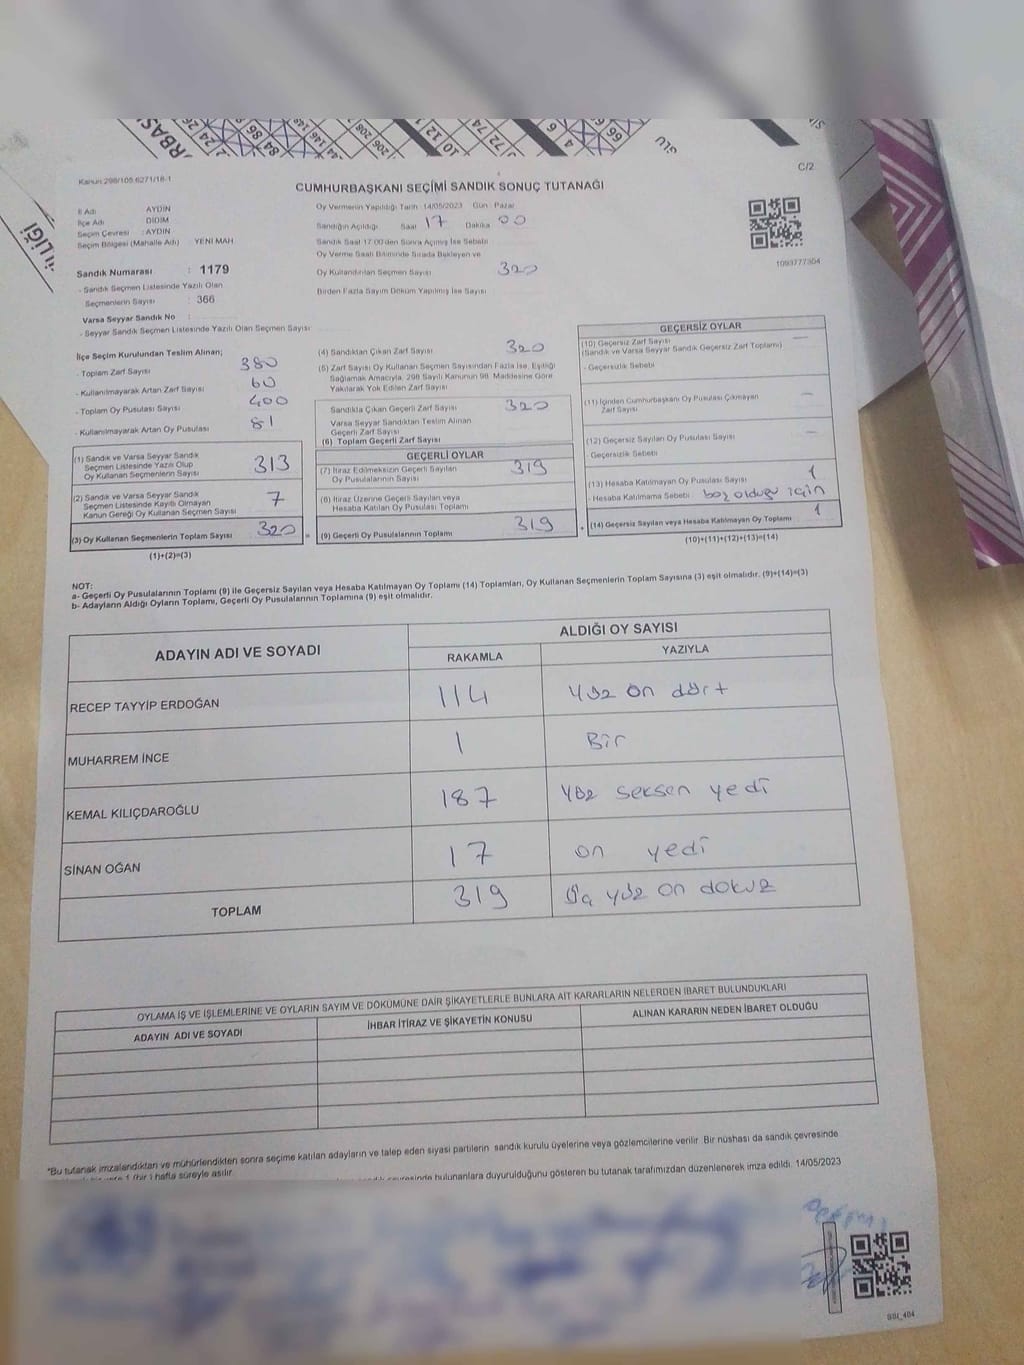 C/2
Kanun 298/105 6271/18-1
CUMHURBAŞKANI SEÇİMİ SANDIK SONUÇ TUTANAĞI
İl Adı AYDIN
İlçe Adı DİDİM
Seçim Çevresi : AYDIN
Seçim Bölgesi (Mahalle Adı) YENİ MAH
Sandık Numarası : 1179
- Sandık Seçmen Listesinde Yazılı Olan
Seçmenlerin Sayısı : 366
Varsa Seyyar Sandık No :
- Seyyar Sandık Seçmen Listesinde Yazılı Olan Seçmen Sayısı
Oy Vermenin Yapıldığı Tarih : 14/05/2023 Gün : Pazar
Sandığın Açıldığı Saat 17 Dakika 00
Sandık Saat 17:00'den Sonra Açılmış İse Sebebi
Oy Verme Saati Bitiminde Sırada Bekleyen ve
Oy Kullandırılan Seçmen Sayısı 320
Birden Fazla Sayım Döküm Yapılmış İse Sayısı
1093777304
İlçe Seçim Kurulundan Teslim Alınan;
- Toplam Zarf Sayısı 380
- Kullanılmayarak Artan Zarf Sayısı 60
- Toplam Oy Pusulası Sayısı 400
- Kullanılmayarak Artan Oy Pusulası 81
(1) Sandık ve Varsa Seyyar Sandık
Seçmen Listesinde Yazılı Olup
Oy Kullanan Seçmenlerin Sayısı 313
(2) Sandık ve Varsa Seyyar Sandık
Seçmen Listesinde Kayıtlı Olmayan
Kanun Gereği Oy Kullanan Seçmen Sayısı 7
(3) Oy Kullanan Seçmenlerin Toplam Sayısı 320
(1)+(2)=(3)
(4) Sandıktan Çıkan Zarf Sayısı 320
(5) Zarf Sayısı Oy Kullanan Seçmen Sayısından Fazla İse, Eşitliği
Sağlamak Amacıyla, 298 Sayılı Kanunun 98. Maddesine Göre
Yakılarak Yok Edilen Zarf Sayısı
Sandıkla Çıkan Geçerli Zarf Sayısı 320
Varsa Seyyar Sandıktan Teslim Alınan
Geçerli Zarf Sayısı
(6) Toplam Geçerli Zarf Sayısı
GEÇERLİ OYLAR
(7) İtiraz Edilmeksizin Geçerli Sayılan
Oy Pusulalarının Sayısı 319
(8) İtiraz Üzerine Geçerli Sayılan veya
Hesaba Katılan Oy Pusulası Toplamı
= (9) Geçerli Oy Pusulalarının Toplamı 319
GEÇERSİZ OYLAR
(10) Geçersiz Zarf Sayısı —
(Sandık ve Varsa Seyyar Sandık Geçersiz Zarf Toplamı)
- Geçersizlik Sebebi
(11) İçinden Cumhurbaşkanı Oy Pusulası Çıkmayan
Zarf Sayısı —
(12) Geçersiz Sayılan Oy Pusulası Sayısı —
- Geçersizlik Sebebi
(13) Hesaba Katılmayan Oy Pusulası Sayısı 1
- Hesaba Katılmama Sebebi boş olduğu için
+ (14) Geçersiz Sayılan veya Hesaba Katılmayan Oy Toplamı 1
(10)+(11)+(12)+(13)=(14)
NOT:
a- Geçerli Oy Pusulalarının Toplamı (9) ile Geçersiz Sayılan veya Hesaba Katılmayan Oy Toplamı (14) Toplamları, Oy Kullanan Seçmenlerin Toplam Sayısına (3) eşit olmalıdır. (9)+(14)=(3)
b- Adayların Aldığı Oyların Toplamı, Geçerli Oy Pusulalarının Toplamına (9) eşit olmalıdır.
ADAYIN ADI VE SOYADI ALDIĞI OY SAYISI
RAKAMLA YAZIYLA
RECEP TAYYİP ERDOĞAN 114 Yüz on dört
MUHARREM İNCE 1 Bir
KEMAL KILIÇDAROĞLU 187 Yüz seksen yedi
SİNAN OĞAN 17 on yedi
TOPLAM 319 Üç yüz on dokuz
OYLAMA İŞ VE İŞLEMLERİNE VE OYLARIN SAYIM VE DÖKÜMÜNE DAİR ŞİKAYETLERLE BUNLARA AİT KARARLARIN NELERDEN İBARET BULUNDUKLARI
ADAYIN ADI VE SOYADI İHBAR İTİRAZ VE ŞİKAYETİN KONUSU ALINAN KARARIN NEDEN İBARET OLDUĞU
*Bu tutanak imzalandıktan ve mühürlendikten sonra seçime katılan adayların ve talep eden siyasi partilerin sandık kurulu üyelerine veya gözlemcilerine verilir. Bir nüshası da sandık çevresinde
1 (bir) hafta süreyle asılır.
bulunanlara duyurulduğunu gösteren bu tutanak tarafımızdan düzenlenerek imza edildi. 14/05/2023